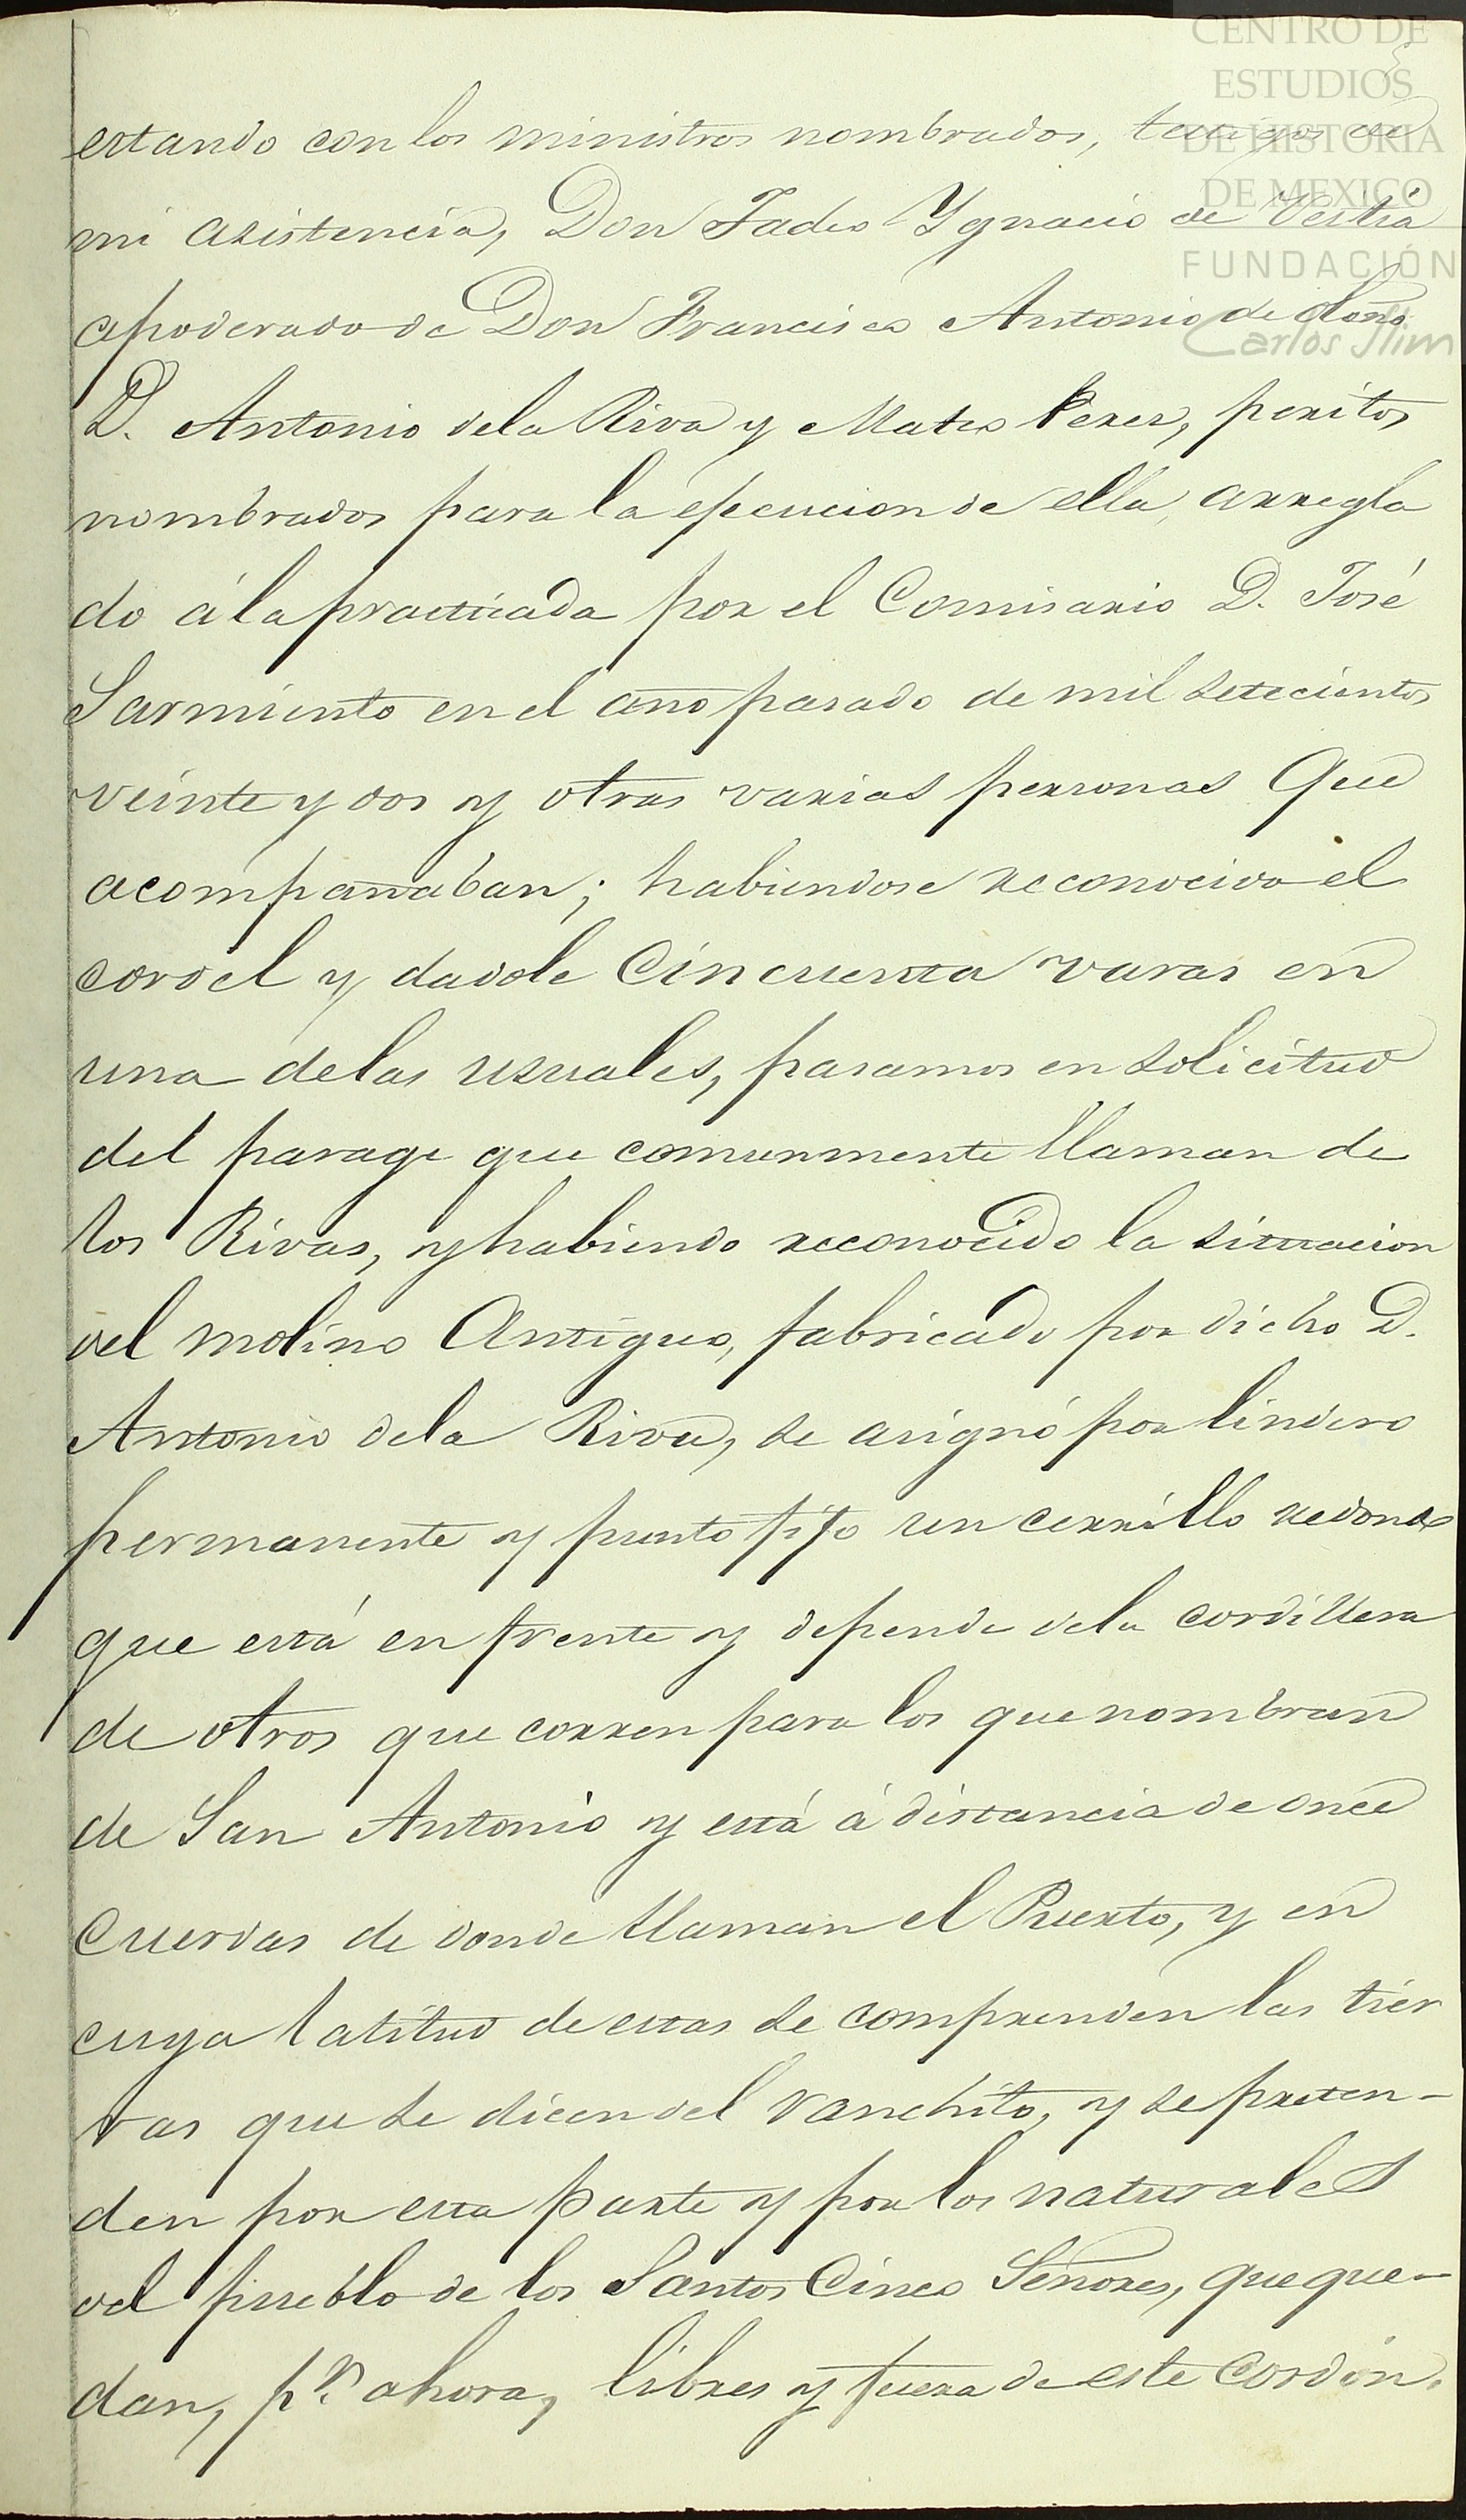 CENTRO DE
ESTUDIOS
DE HISTORIA
DE MEXICO
FUNDACIÓN
Carlos Slim
estando con los ministros nombrados, testigos de
mi asistencia, Don Tadeo Ygnacio de Vestia
apoderado de Don Francisco Antonio de
D. Antonio dela Riva y Mateo Perez, peritos
nombrados para la ejecucion de ella, arregla
do á la practicada por el Comisario D. José
Sarmiento en el año pasado de mil setecientos
veinte y dos y otras varias personas que
acompañaban; habiendose reconocido el
cordel y dadole cincuenta varas en
una delas usuales, pasamos en solicitud
del parage que comunmente llaman de
los Rivas, y habiendo reconocido la situacion
del molino Antiguo, fabricado por dicho D.
Antonio dela Riva, se asignó por lindero
permanente y punto fijo un cerrillo redondo
que está en frente y depende dela cordillera
de otros que corren para los que nombran
de San Antonio y está á distancia de once
cuerdas de donde llaman el Puerto, y en
cuya latitud de estas se comprenden las tier
ras que se dicen del ranchito, y se preten-
den por esta parte y por los naturales
del pueblo de los Santos Cinco Señores, que que-
dan, pr. ahora, libres y fuera de este cordon.